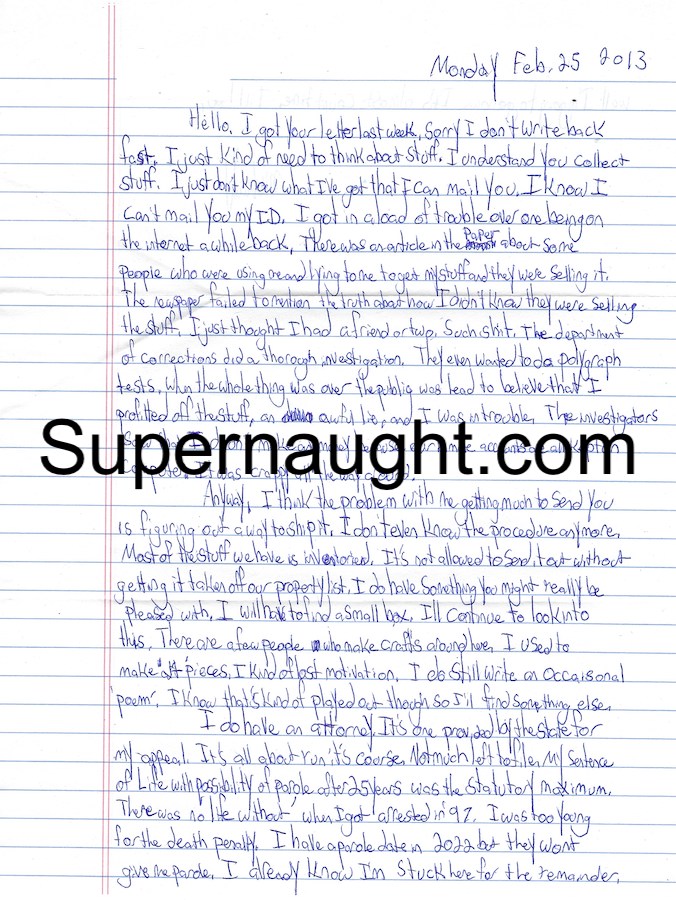 Monday Feb. 25 2013
Hello. I got your letter last week, Sorry I don't write back
fast. I just kind of need to think about stuff. I understand you collect
stuff. I just don't know what I've got that I can mail you. I know I
can't mail you my I.D. I got in a load of trouble over one being on
the internet a while back. There was an article in the Paper about some
people who were using me and lying to me to get my stuff and they were selling it.
The newspaper failed to mention the truth about how I didn't know they were selling
the stuff. I just thought I had a friend or two. Such shit. The department
of corrections did a thorough investigation. They even wanted to do a polygraph
tests, when the whole thing was over the public was lead to believe that I
profitted off the stuff, an awful lie, and I was in trouble. The investigators
Supernaught.com
saw that I didn't make any money because our inmate accounts are all kept on
computer. It was crappy all the way around.
Anyway, I think the problem with me getting much to send you
is figuring out a way to ship it. I don't even know the procedure anymore.
Most of the stuff we have is inventoried. It's not allowed to send it out without
getting it taken off our property list. I do have something you might really be
pleased with. I will have to find a small box. I'll continue to look into
this. There are a few people who make crafts around here, I used to
make art pieces. I kind of lost motivation. I do still write an occaisonal
'poem'. I know that's kind of played out though so I'll find something else.
I do have an attorney. It's one provided by the state for
my appeal. It's all about run it's course. Not much left to file. My Sentence
of Life with possibility of parole after 25 years was the statutory maximum.
There was no 'life without' when I got arrested in '97. I was too young
for the death penalty. I have a parole date in 2022 but they won't
give me parole. I already know I'm stuck here for the remainder.